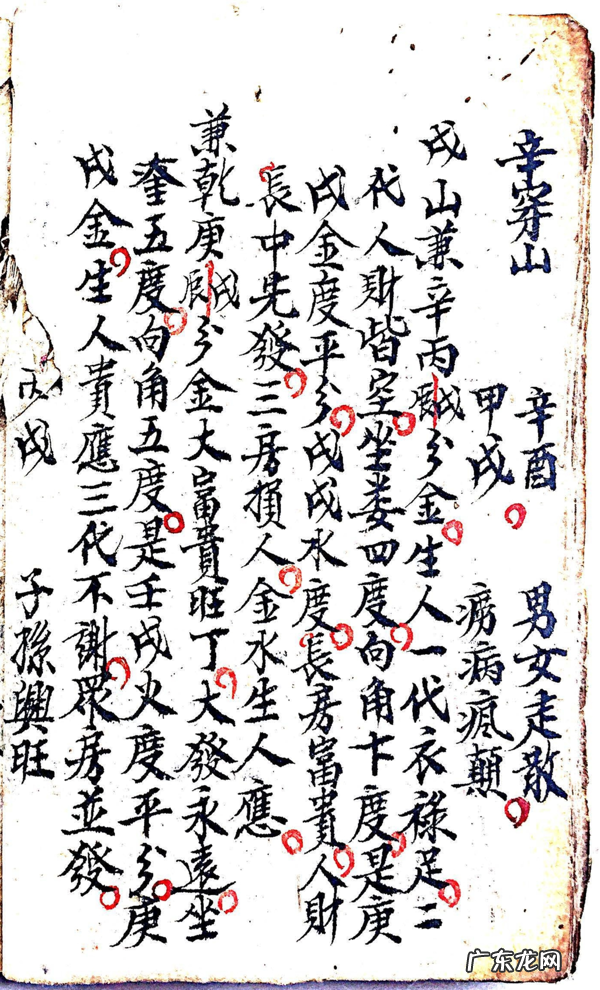 辛穿山　辛酉　男女走散
甲戌　癆病瘋顛
戌山兼辛丙戌分金生人一代衣祿足二
代人財皆空坐娄四度向角十度是庚
戌金度平分戌戌水度長房富貴人財
長中先發三房損人金水生人應
兼乾庚戌分金大富貴旺丁大發永遠坐
奎五度向角五度是壬戌火度平分庚
戌金生人貴應三代不謝眾房並發
丙戌　子孫興旺
广东龙网